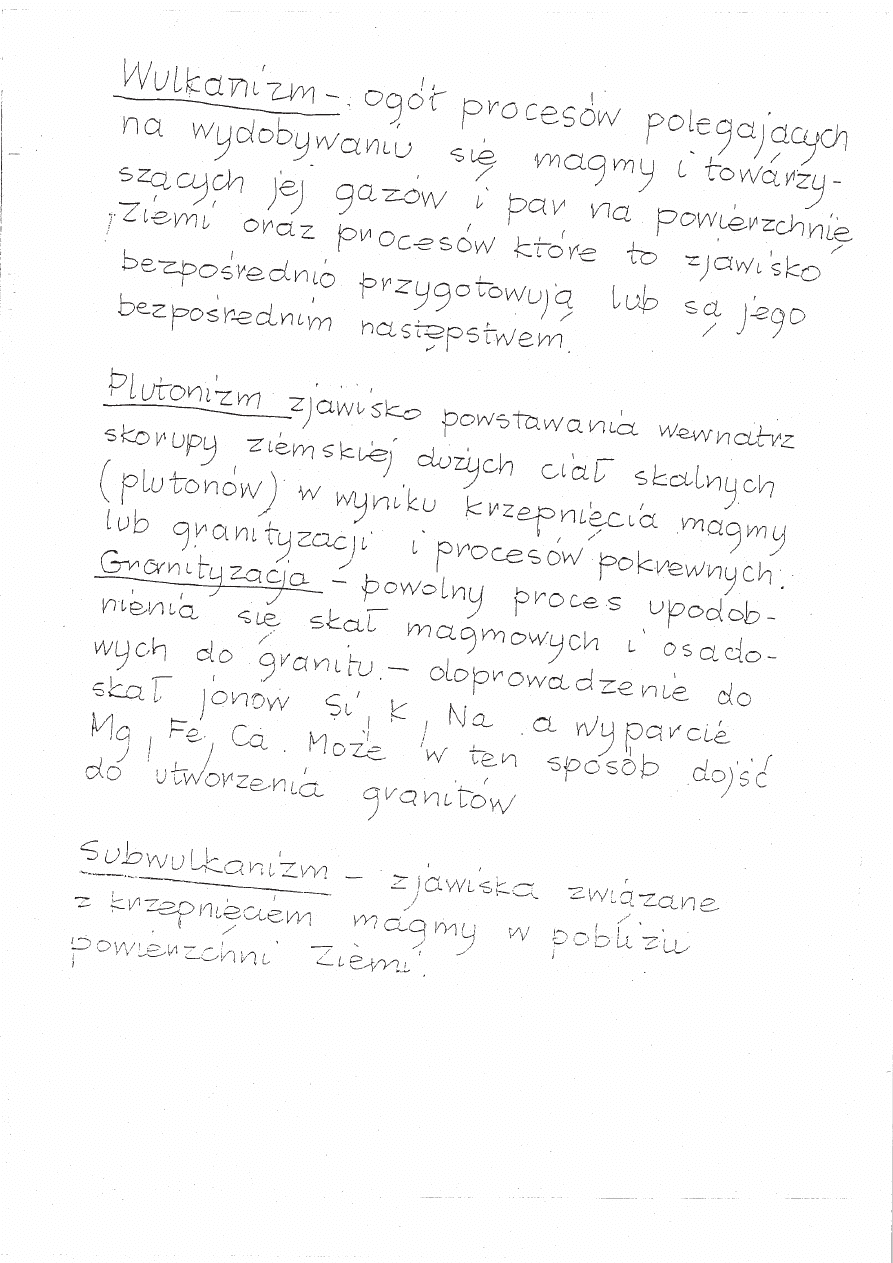 Wulkanizm - ogół procesów polegających
na wydobywaniu się magmy i towarzy-
szących jej gazów i par na powierzchnię
Ziemi oraz procesów które to zjawisko
bezpośrednio przygotowują lub są jego
bezpośrednim następstwem.
Plutonizm zjawisko powstawania wewnatrz
skorupy ziemskiej dużych ciał skalnych
(plutonów) w wyniku krzepnięcia magmy
lub granityzacji i procesów pokrewnych.
Granityzacja - powolny proces upodob-
nienia się skał magmowych i osado-
wych do granitu. - doprowadzenie do
skał jonow Si, K, Na a wyparcie
Mg, Fe, Ca. Może w ten sposób dojść
do utworzenia granitów
Subwulkanizm - zjawiska związane
z krzepnięciem magmy w pobliżu
powierzchni Ziemi.